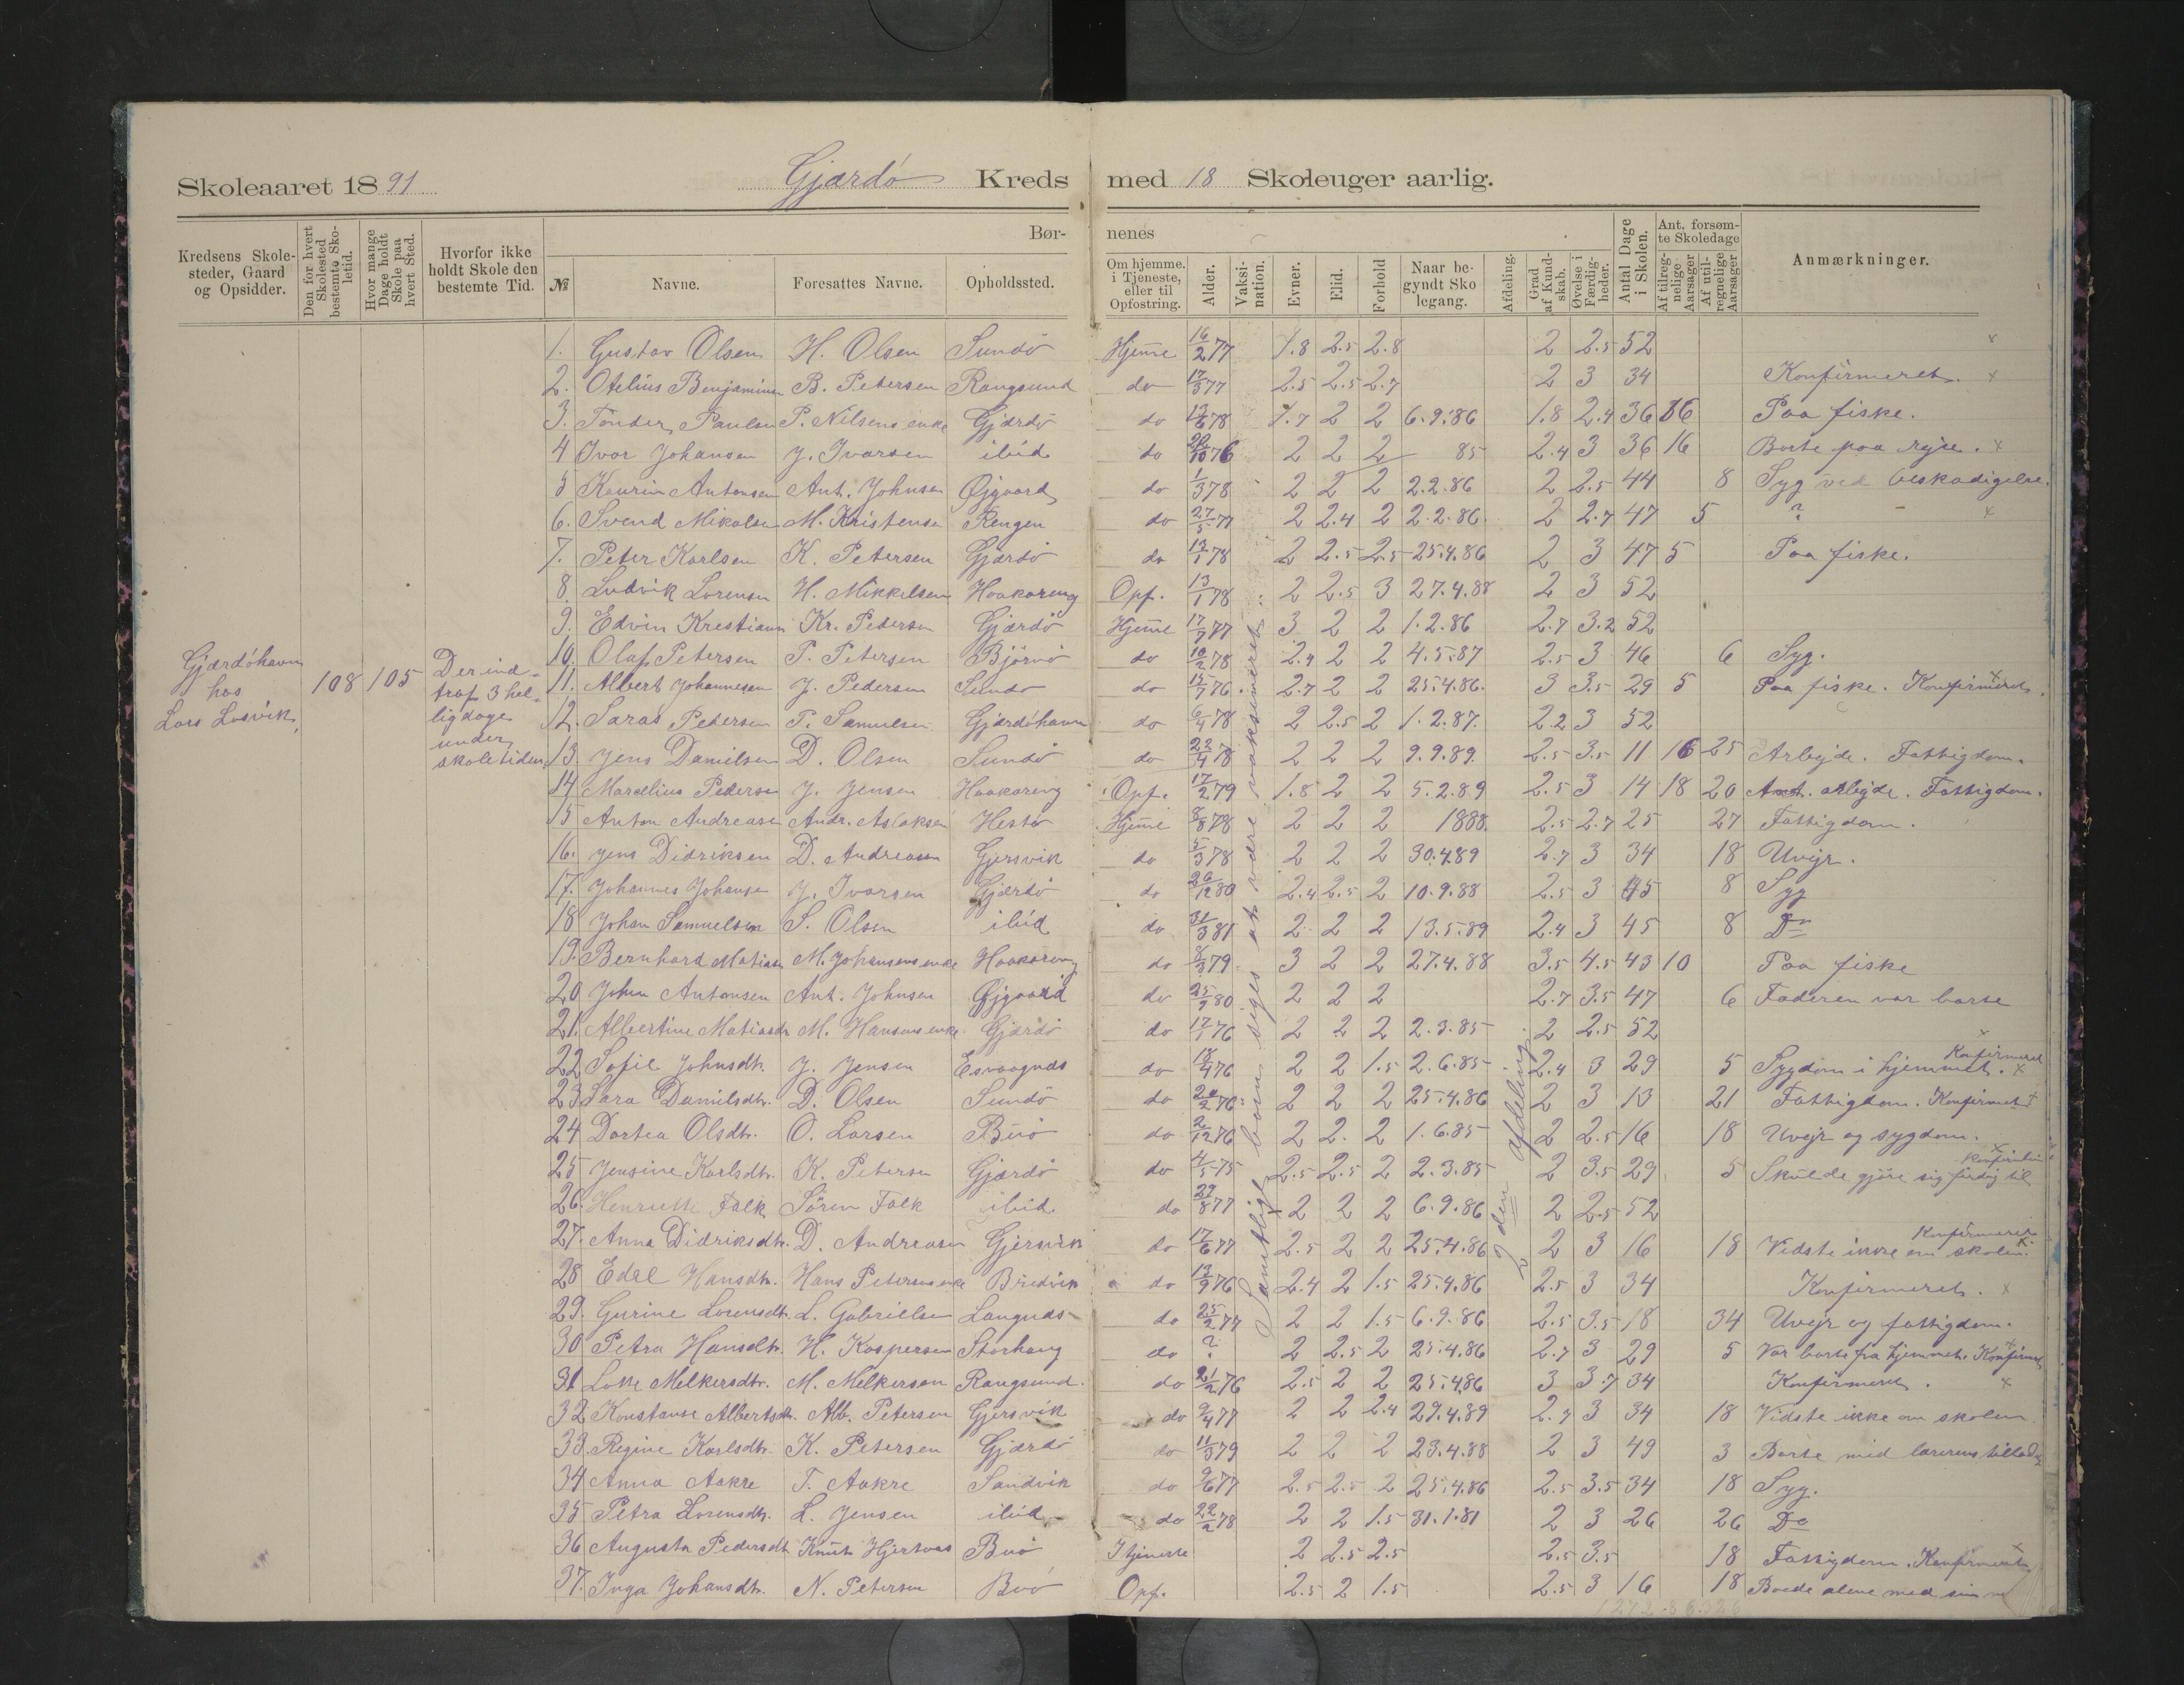 Skoleaaret 1891 Gjærdö Kreds med 18 Skoleuger aarlig.
Kredsens Skolesteder, Gaard og Opsidder.
Den for hvert Skolested bestemte Skoletid.
Hvor mange Dage holdt Skole paa hvert Sted.
Hvorfor ikke holdt Skole den bestemte Tid.
Børnenes
№ Navne. Foresattes Navne. Opholdssted.
Om hjemme, i Tjeneste, eller til Opfostring.
Alder. Vaksination. Evner. Flid. Forhold
Naar begyndt Skolegang.
Afdeling. Grad af Kundskab. Øvelse i Færdigheder.
Antal Dage i Skolen.
Ant. forsømte Skoledage
Af tilregnelige Aarsager
Af utilregnelige Aarsager
Anmærkninger.
Gjærdöhavn
hos
Lars Losvik,
108 105
Der ind-
traf 3 hel-
ligdage
under
skoletiden.
1. Gustav Olsen H. Olsen Sundö Hjeme 16/2 77 1.8 2.5 2.8 2 2.5 52 x
2. Otelius Benjaminsen B. Petersen Rangsund do 17/3 77 2.5 2.5 2.7 2 3 34 Konfirmeret. x
3. Tönder Paulsen P. Nilsens enke Gjærdö do 13/6 78 1.7 2 2 6.9.86 1.8 2.4 36 16 Paa fiske.
4 Ivar Johansen J. Ivarsen ibid do 20/10 76 2 2 2 85 2.4 3 36 16 Borte paa rejse. x
5 Kaurin Antonsen Ant. Johnsen Øjgaard do 1/3 78 2 2 2 2.2.86 2 2.5 44 8 Syg ved beskadigelse.
6. Svend Mikalsen M. Kristensen Rengen do 27/5 77 2 2.4 2 2.2.86. 2 2.7 47 5 ? x
7. Peter Karlsen K. Petersen Gjærdö do 13/1 78 2 2.5 2.5 25.4.86 2 3 47 5 Paa fiske.
8. Ludvik Lorensen H. Mikkelsen Haakoreng Opf. 13/1 78 2 2.5 3 27.4.88 2 3 52
9. Edvin Krestiansen Kr. Pedersen Gjærdö Hjeme 17/9 77 3 2 2 1.2.86 2.7 3.2 52
10. Olaf Petersen P. Petersen Björnö do 10/2 78 2.4 2 2 4.5.87 2.5 3 46 6 Syg.
11. Albert Johannesen J. Pedersen Sundö do 15/7 76. 2.7 2 2 25.4.86. 3 3.5 29 5 Paa fiske. Konfirmeret. x
12. Saras Pedersen P. Samuelsen Gjærdöhavn do 6/4 78 2 2.5 2 1.2.87. 2.2 3 52
13. Jens Danielsen D. Olsen Sundö do 22/4 78 2 2 2 9.9.89. 2.5 3.5 11 16 25 Arbejde. Fattigdom.
14 Marelius Pedersen J. Jensen Haakoreng Opf. 17/2 79 1.8 2 2 5.2.89 2.5 3 14 18 20 Ant. arbejde. Fattigdom.
15 Anton Andreasen Andr. Aslaksen Hestö Hjeme 8/8 78 2 2 2 1888. 2.5 2.7 25 27 Fattigdom.
16. Jens Didriksen D. Andreasen Gjersvik do 5/3 78 2 2 2 30.4.89 2.7 3 34 18 Uvejr.
17. Johannes Johansen J. Ivarsen Gjærdö do 20/12 80 2.4 2.5 2 10.9.88 2.5 3 45 8 Syg
18 Johan Samuelsen S. Olsen ibid do 31/3 81 2 2 2 13.5.89 2.4 3 45 8 Do
19. Bernhard Matiasen M. Johansens enke Haakoreng do 8/3 79. 3 2 2 27.4.88 3.5 4.5 43 10 Paa fiske
20 Johan Antonsen Ant. Johnsen Øjgaard do 25/9 80 2 2 2 2.7 3.5 47 6 Faderen var borte
21. Albertine Matiasdtr. M. Hansens enke. Gjærdö do 17/1 76 2 2 2 2.3.85 2 2.5 52
22 Sofie Johnsdtr. J. Jensen Esvaagnæs do 18/4 76 2 2 1.5 2.6.85 2.4 3 29 5 Sygdom i hjemmet. Konfirmeret x
23. Sara Danielsdtr. D. Olsen Sundö do 20/2 76 2 2 2 25.4.86 2 3 13 21 Fattigdom. Konfirmeret
24 Dortea Olsdtr. O. Larsen Buö do 2/12 76 2 2. 2 1.6.85 2 2.5 16 18 Uvejr og sygdom.
25 Jensine Karlsdtr. K. Petersen Gjærdö do 4/5 75 2.5 2.5 2 2.3.85 2 3.5 29 5 Skulde gjöre sig færdig til
26. Henriette Falk Sören Falk ibid. do 29/8 77 2 2 2 6.9.86 2 2.5 52
27. Anna Didriksdtr. D. Andreasen Gjersvik do 17/6 77 2.5 2 2 25.4.86 2 3 16 18 Vidste ikke om skolen. Konfirmeret x
28 Edel Hansdtr. Hans Petersens enke Bredvik do 13/9 76 2.4 2 1.5 25.4.86 2.5 3 34 Konfirmeret. x
29. Gurine Lorensdtr. L. Gabrielsen Langnæs do 25/2 77 2 2 1.5 6.9.86 2.5 3.5 18 34 Uvejr og fattigdom.
30 Petra Hansdtr. H. Kaspersen Storhaug do ? 2 2.5 2 25.4.86 2.7 3 29 5 Var borte fra hjemmet. Konfirmeret
31 Lotte Melkersdtr. M. Melkersen Rangsund. do 21/2 76 2.5 2 2 25.4.86 3 3.7 34 Konfirmeret. x
32 Konstanse Albertsdtr. Alb. Petersen Gjersvik do 9/4 77 2 2 2.4 29.4.89 2.7 3 34 18 Vidste ikke om skolen
33. Regine Karlsdtr. K. Petersen Gjærdö do 11/3 79 2 2 2 23.4.88 2 3 49 3 Borte med lærerens tillad
34 Anna Aakre T. Aakre Sandvik do 9/6 77 2.5 2.5 2 25.4.86 2.5 3.5 34 18 Syg.
35 Petra Lorensdtr. L. Jensen ibid do 22/2 78 2 2 1.5 31.1.81 2 3 26 26 Do
36 Augusta Pedersdtr. Knut Hjertvas Buö I tjeneste 2 2.5 2.5 2.5 3.5 18 Fattigdom. Konfirmeret x
37. Inga Johansdtr. N. Petersen Buö Opf. 2.5 2 1.5 2.5 3 16 18 Boede alene med sin
Samtlige börn siges at være vaksineret.
2den Afdeling